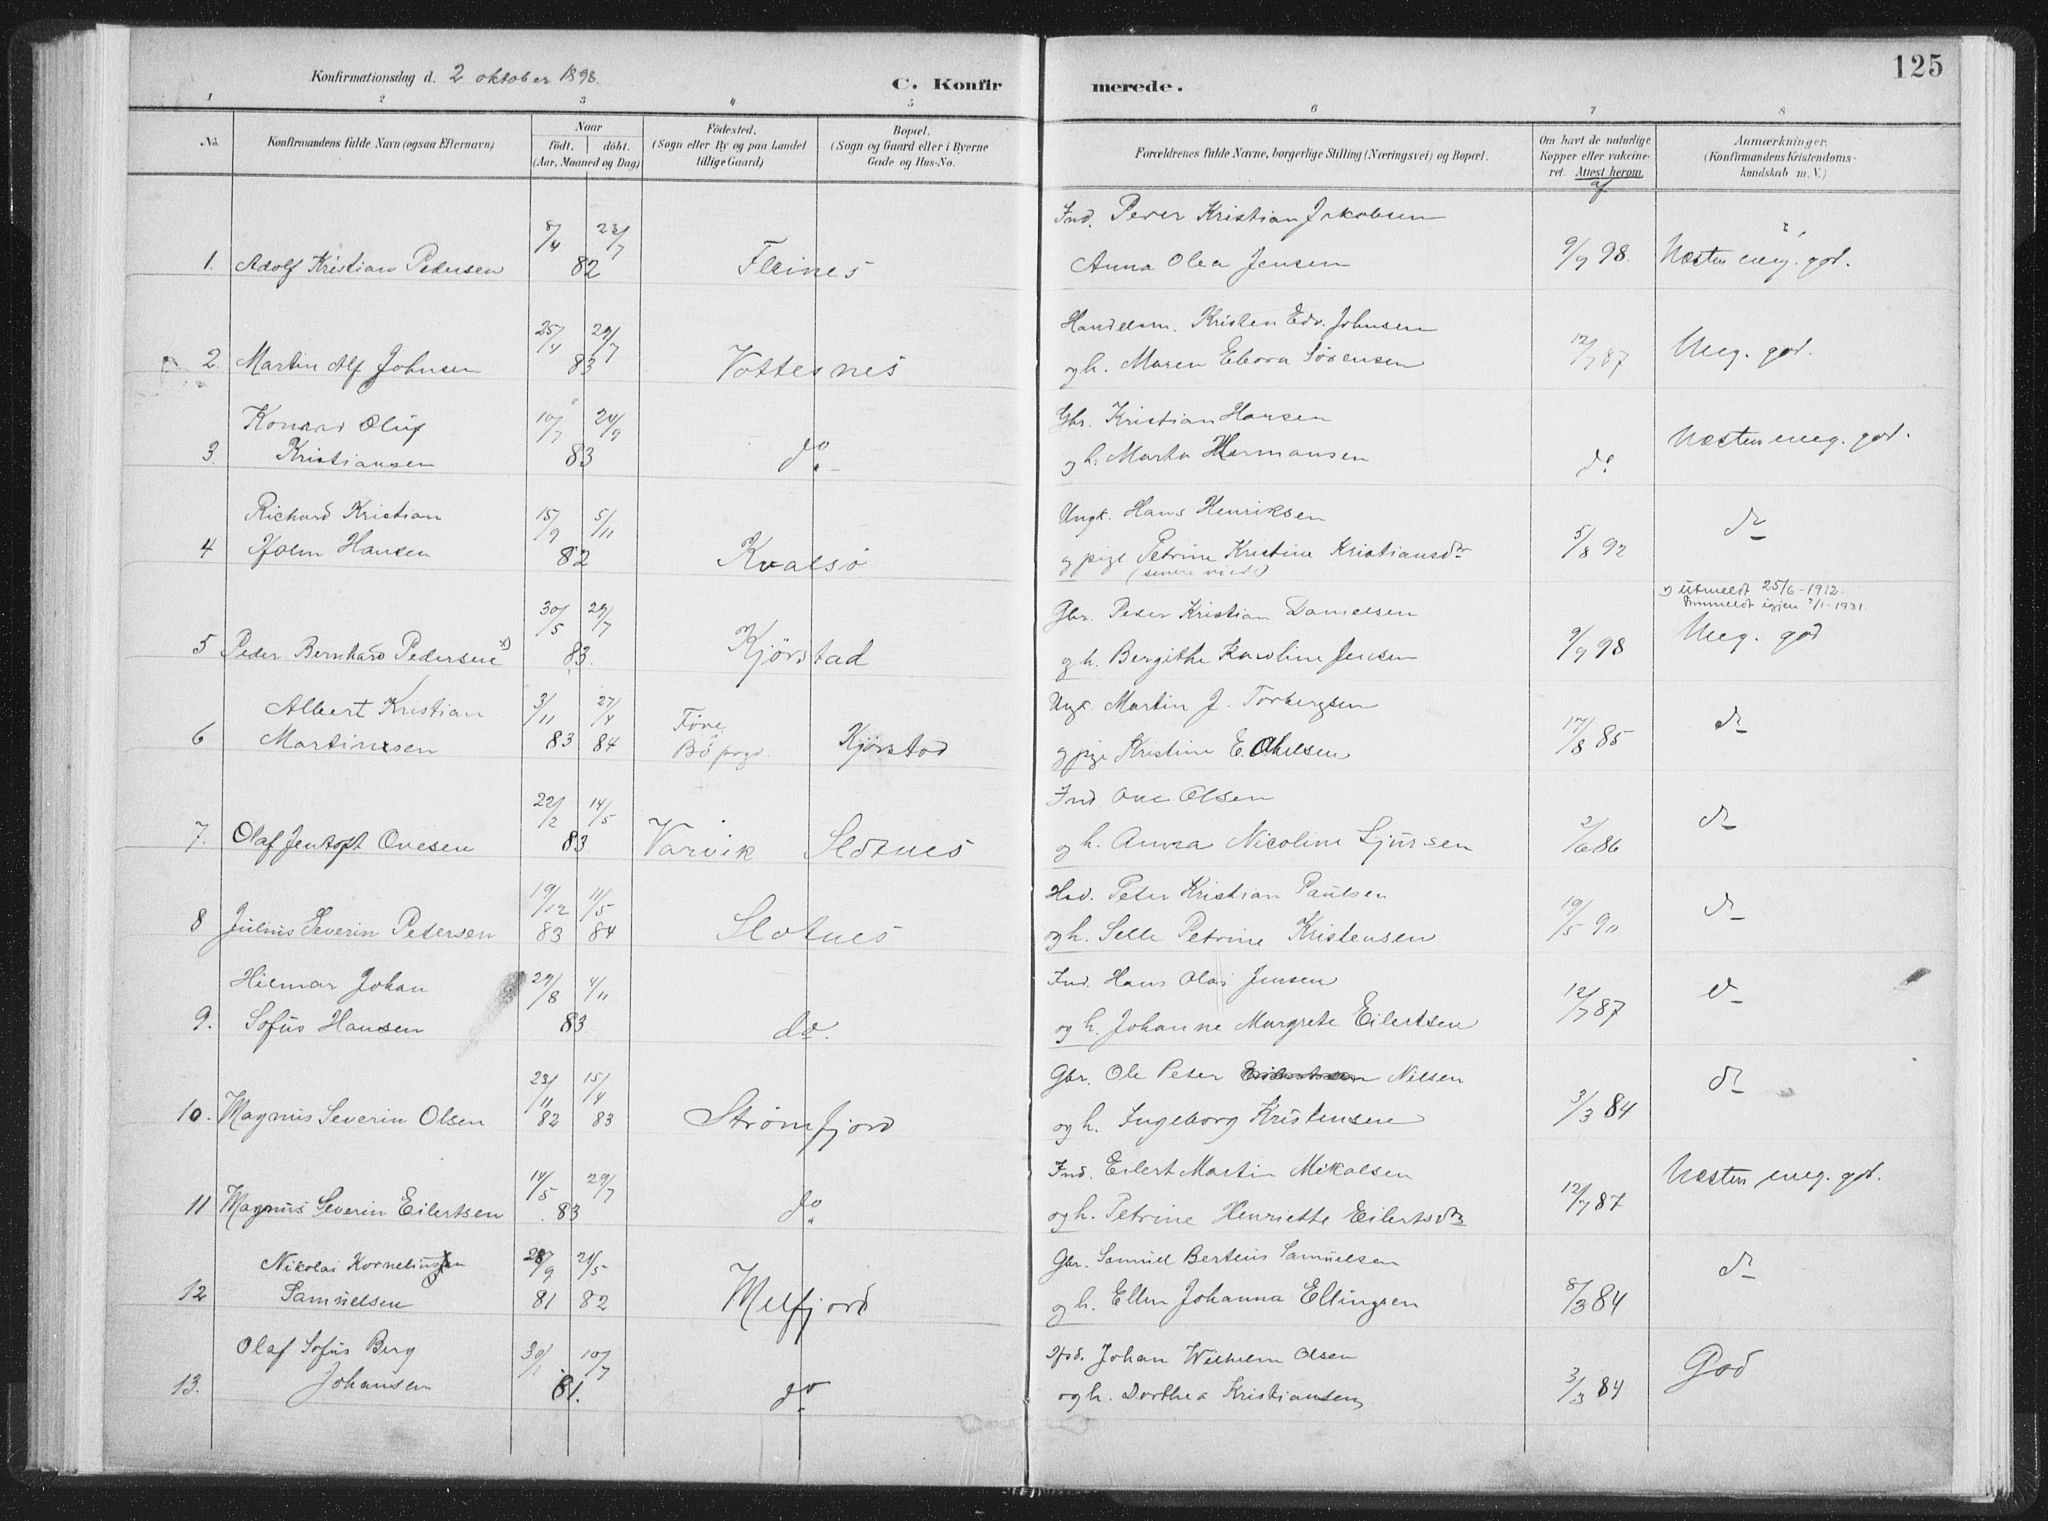 Konfirmationsdag d. 2 oktober 1898.
C. Konfirmerede.
125
1 2 3 4 5 6 7 8
No.
Konfirmandens fulde Navn (ogsaa Efternavn)
Naar
födt. döbt.
(Aar, Maaned og Dag)
Födested.
(Sogn eller By og paa Landet
tillige Gaard)
Bopæl.
(Sogn og Gaard eller i Byerne
Gade og Hus-No.
Forældrenes fulde Navne, borgerlige Stilling (Næringsvei) og Bopæl.
Om havt de naturlige
Kopper eller vakcine-
ret. Attest herom
af
Anmærkninger.
(Konfirmandens Kristendoms-
kundskab m. V.)
Ind. Peder Kristian Jakobsen
1. Adolf Kristian Pedersen 8/4 23/7 82 Fleines
Anna Olea Jensen 9/9 98. Næsten meg. god.
Handelsm. Kristen Edv. Johnsen
2. Martin Alf Johnsen 25/4 29/7 83 Vottesnes
og h. Maren Ebora Sörensen 12/7 87 Meg. god.
Konrad Oluf
3. Kristiansen 10/7 24/9 83 do
Gbr. Kristian Hansen
og h. Marta Hermansen do Næsten meg. god.
Richard Kristian
4 Holm Hansen 15/9 5/11 82 Kvalsö
Ungk. Hans Henriksen
og pige Petrine Kristine Kristiansdr 5/8 92 do
(senere viede)
x) utmeldt 25/6-1912.
Innmeldt igjen 7/1-1931.
5 Peder Bernhard Pedersen x) 30/5 29/7 83. Kjörstad
Gbr. Peder Kristian Danielsen
og h. Bergithe Karoline Jensen 9/9 98 Meg. god
Albert Kristian
6 Martinsen 3/11 83 27/4 84 Före Bö pgd. Kjörstad
Ungk. Martin J. Torbergsen
og pige Kristine E. Olsen 17/8 85 do
7. Olaf Jentoft Ovesen 22/2 14/5 83 Varvik Slotnes
Ind Ove Olsen
og h. Anna Nicoline Sjursen 2/6 86 do
8 Julius Severin Petersen 19/12 83 11/5 84 Slotnes
Hsd. Peter Kristian Paulsen
og h. Selle Petrine Kristensen 19/5 90 do
Hilmar Johan
9. Sofus Hansen 29/8 4/11 83 do.
Ind. Hans Olai Jensen
og h. Johanne Margrete Eilertsen 12/7 87 do
10. Magnus Severin Olsen 23/11 82 15/4 83 Strömfjord
Gbr. Ole Peter Nilsen
og h. Ingeborg Kristensen 3/3 84 do
11 Magnus Severin Eilertsen 14/5 29/7 83 do
Ind. Eilert Martin Mikalsen
og h. Petrine Henriette Eilertsdr 12/7 87 Næsten meg. god.
Nikolai Kornelius
12 Samuelsen 28/9 81 21/5 82 Melfjord
Gbr. Samuel Berteus Samuelsen
og h. Ellen Johanna Ellingsen 8/3 84 do
Olaf Sofus Berg
13. Johansen 30/1 10/7 81. do
Johan Wilhelm Olsen
og h. Dorthea Kristiansen 3/3 84 God